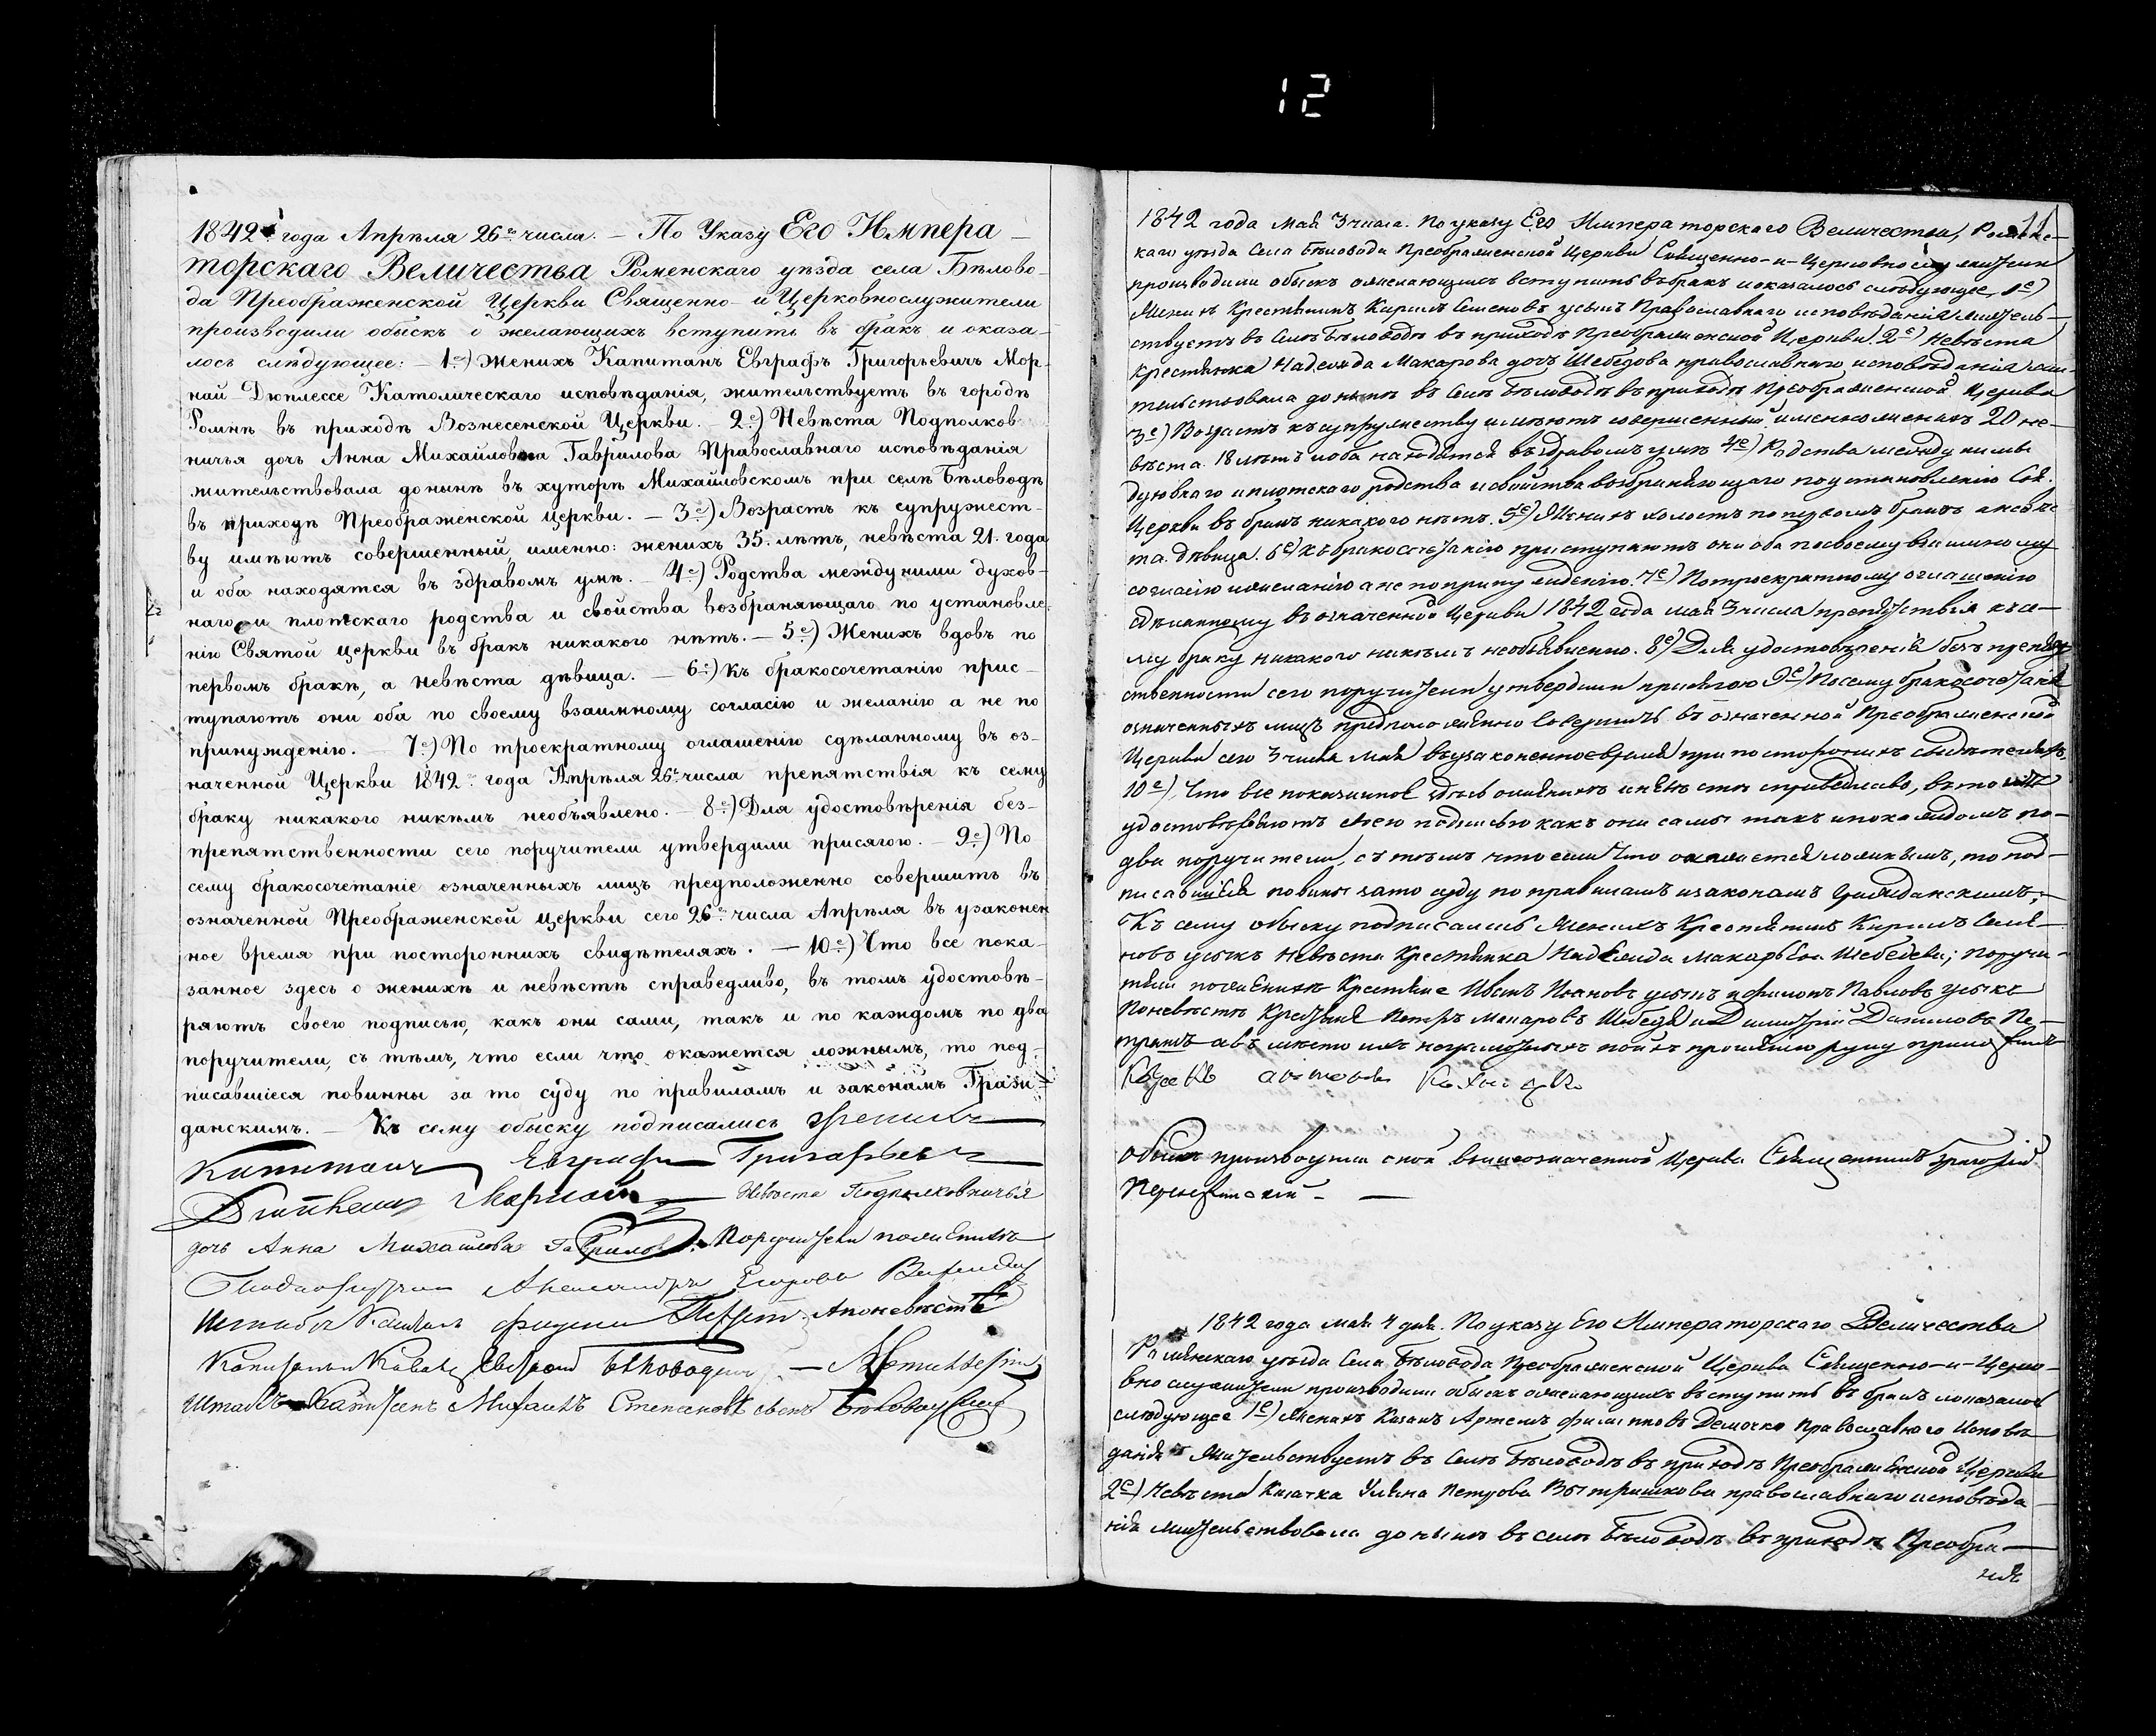 12
1842 года Апрѣля 26го числа. — По Указу Его Импера-
торскаго Величества Роменскаго уѣзда села Бѣлово-
да Преображенской Церкви Священно- и Церковнослужители
производили обыскъ о желающихъ вступить въ бракъ и оказа-
лось слѣдующее: — 1е) Женихъ Капитанъ Евграфъ Григорьевичъ Мор-
най Дюплессе Католическаго исповѣданія, жительствуетъ въ городѣ
Ромнѣ въ приходѣ Вознесенской Церкви. — 2е) Невѣста Подполков-
ничья дочь Анна Михайловна Гаврилова Православнаго исповѣданія
жительствовала донынѣ въ хуторѣ Михайловскомъ при селѣ Бѣловодѣ
въ приходѣ Преображенской церкви. — 3е) Возрастъ къ супружест-
ву имѣютъ совершенный, именно: женихъ 35. лѣтъ, невѣста 21. года
и оба находятся въ здравомъ умѣ. — 4е) Родства между ними духов-
наго и плотскаго родства и свойства возбраняющаго по установле-
нію Святой церкви въ бракъ никакого нѣтъ. — 5е) Женихъ вдовъ по
первомъ бракѣ, а невѣста дѣвица. — 6е) Къ бракосочетанію прис-
тупаютъ они оба по своему взаимному согласію и желанію а не по
принужденію. — 7е) По троекратному оглашенію сдѣланному въ оз-
наченной Церкви 1842 года Апрѣля 26го числа препятствія къ сему
браку никакого никѣмъ необъявлено. — 8е) Для удостовѣренія без-
препятственности сего поручители утвердили присягою. — 9е) По
сему бракосочетаніе означенныхъ лицъ предположенно совершить въ
означенной Преображенской церкви сего 26го числа Апрѣля въ узаконен
ное время при постороннихъ свидѣтеляхъ. — 10е) Что все пока-
занное здесь о женихѣ и невѣстѣ справедливо, въ томъ удостовѣ-
ряютъ своею подписью, какъ они сами, такъ и по каждомъ по два
поручители, съ тѣмъ, что если что окажется ложнымъ, то под-
писавшіеся повинны за то суду по правиламъ и законамъ Граж-
данскимъ. — Къ сему обыску подписались Женихъ
Капитанъ Евграфъ Григорьевъ
Морнай Невѣста Подполковничья
дочь Анна Михайлова Гаврилова. Поручители по женихѣ
Александръ Егоровъ
Штабсъ Капитанъ А по невѣстѣ
Бѣловодскій
Штабсъ-Капитанъ Михаилъ Степановъ сынъ
11
1842 года Мая 3 числа. По указу Его Императорскаго Величества, Роменс-
каго уѣзда Села Бѣловода Преображенской Церкви Священно-и-Церковнослужители
производили обыскъ ожелающихъ вступить въ бракъ и оказалось слѣдующее, 1е)
Женихъ Крестьянинъ Кирилъ Семеновъ Усыкъ Православнаго исповѣданія жытель-
ствуетъ въ Селѣ Бѣловодѣ въ приходѣ Преображенской Церкви. 2е) Невѣста
Крестьянка Надежда Макарова дочь Шебедова православнаго исповѣданія жи-
тельствовала донынѣ въ Селѣ Бѣловодѣ въ приходѣ Преображенской Церкви
3е) Возрастъ къ супружеству имѣютъ совершенный, именно женихъ 20 не-
вѣста 18 лѣтъ и оба находятся въ здравомъ умѣ 4е) Родства между ними
духовнаго и плотскаго родства и свойства возбраняющаго по установленію Свя.
Церкви въ бракъ никакого нѣтъ. 5е) Женихъ холостъ по первомъ бракѣ а невѣс
та дѣвица. 6е) Къ бракосочетанію приступаютъ они оба по своему взаимному
согласію и желанію а не по принужденію. 7е) По троекратному оглашенію
сдѣланному въ означенной Церкви 1842 года мая 3 числа препятствія къ се-
му браку никакого никѣмъ необъявленно. 8е) Для удостовѣренія безъ препят
ственности сего поручители утвердили присягою 9е) Посему бракосочетаніе
означенныхъ лицъ предположенно совершить въ означенной Преображенской
Церкви сего 3 числа мая въ узаконенное время при постороннихъ свидѣтеляхъ.
10е) Что все показанное здесь о женихѣ и невѣстѣ справедливо, въ томъ
удостовѣряютъ своею подписью какъ они самы такъ и по каждомъ по-
два поручители, съ тѣмъ что если что окажется ложнымъ, то под-
писавшійся повины зато суду по правиламъ и законамъ Гражданскимъ;
Къ сему обыску подписались Женихъ Крестянинъ Кирилъ Семе-
новъ Усыкъ Невѣста Крестянка Надежда Макарьева Шебедева; Поручи-
тели по женихѣ Крестяне Иванъ Ивановъ Усыкъ и Филипъ Павловъ Усыкъ
По невѣстѣ Крестьяне Петръ Макаровъ Шебедя и Димитрій Даниловъ Пе-
а въ мѣсто ихъ неграмотныхъ по ихъ прошенію руку приложилъ
Обыскъ производилъ вышеозначенной Церкви Священникъ Григорій
1842 года мая 4 дня. По указу Его Императорскаго Величества
Роменскаго уѣзда Села Бѣловода Преображенской Церкви Священно-и-Церко-
вно служители производили обыскъ ожелающихъ вступить въ бракъ и оказалось
слѣдующее 1е) Женихъ Казакъ Артемъ Филиповъ Демочко Православнаго Исповѣ
данія Жительствуетъ въ Селѣ Бѣловодѣ въ приходѣ Преображенской Церкви
2е) Невѣста Казачка Уляна Петрова Вотришкова православнаго исповѣда-
нія жительствовала донынѣ въ селѣ Бѣловодѣ въ приходѣ Преобра-